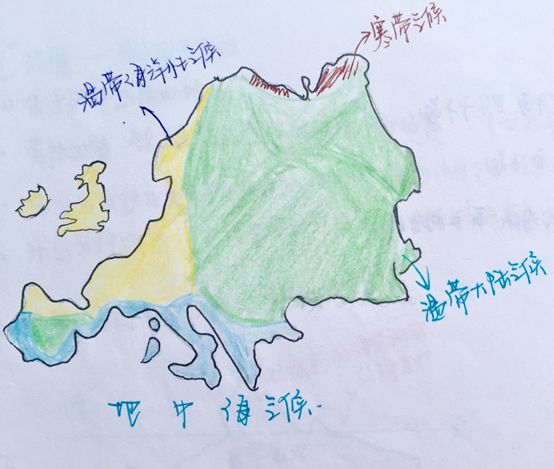 寒带气候
温带海洋性气候
温带大陆气候
地中海气候